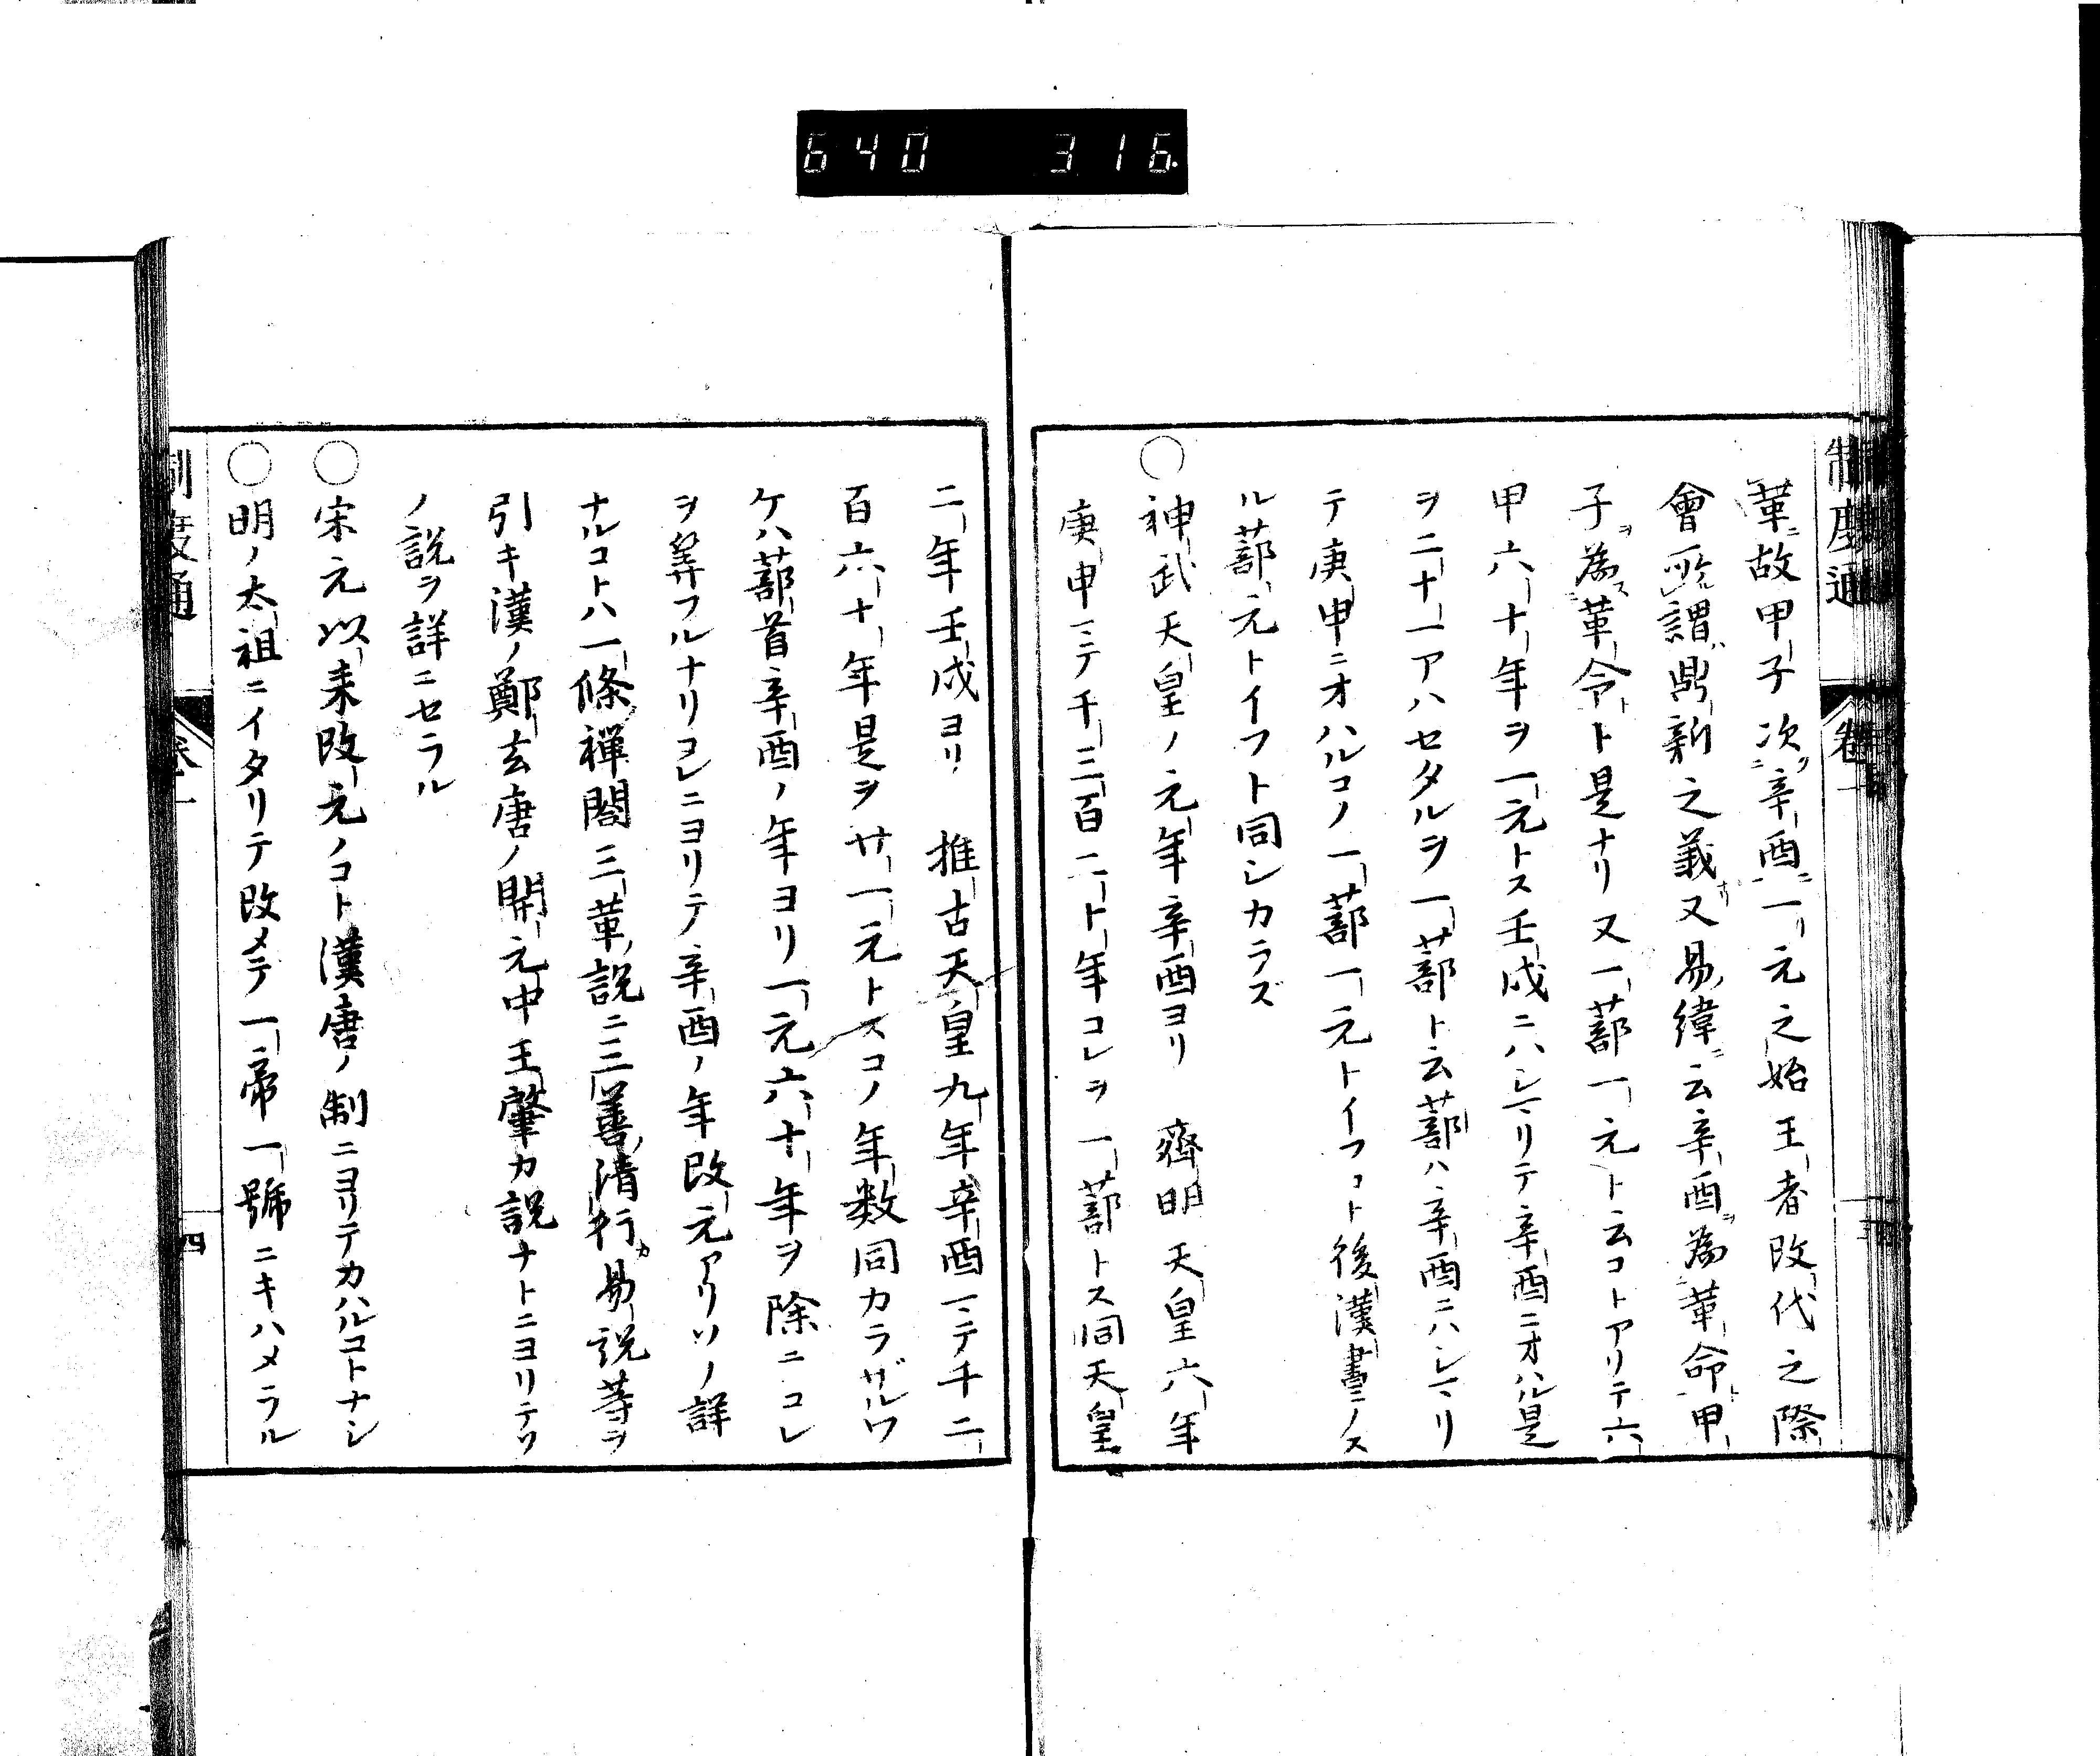 640 316
制度通 卷一
革故甲子次辛酉一元之始王者改代之際
會所謂鼎新之義又易緯云辛酉為革命甲
子為革令ト是ナリ又一蔀一元ト云コトアリテ六
甲六十年ヲ一元トス壬戌ニハシマリテ辛酉ニオハル是
ヲ二十一アハセタルヲ一蔀ト云蔀ハ辛酉ニハシマリ
テ庚申ニオハルコノ一蔀一元トイフコト後漢書ニノス
ル蔀元トイフト同シカラズ
○神武天皇ノ元年辛酉ヨリ 齊明天皇六年
庚申マテ千三百二十年コレヲ一蔀トス同天皇
二年壬戌ヨリ 推古天皇九年辛酉マテ千二
百六十年是ヲ廿一元トスコノ年数同カラザルワ
ケハ蔀首辛酉ノ年ヨリ一元六十年ヲ除ニコレ
ヲ筭フルナリコレニヨリテ辛酉ノ年改元アリソノ詳
ナルコトハ一條禪閤三革説ニ三善清行カ易説等ヲ
引キ漢ノ鄭玄唐ノ開元中王肇カ説ナトニヨリテソ
ノ説ヲ詳ニセラル
○宋元以来改元ノコト漢唐ノ制ニヨリテカハルコトナシ
○明ノ太祖ニイタリテ改メテ一帝一號ニキハメラル
制度通 卷一 四